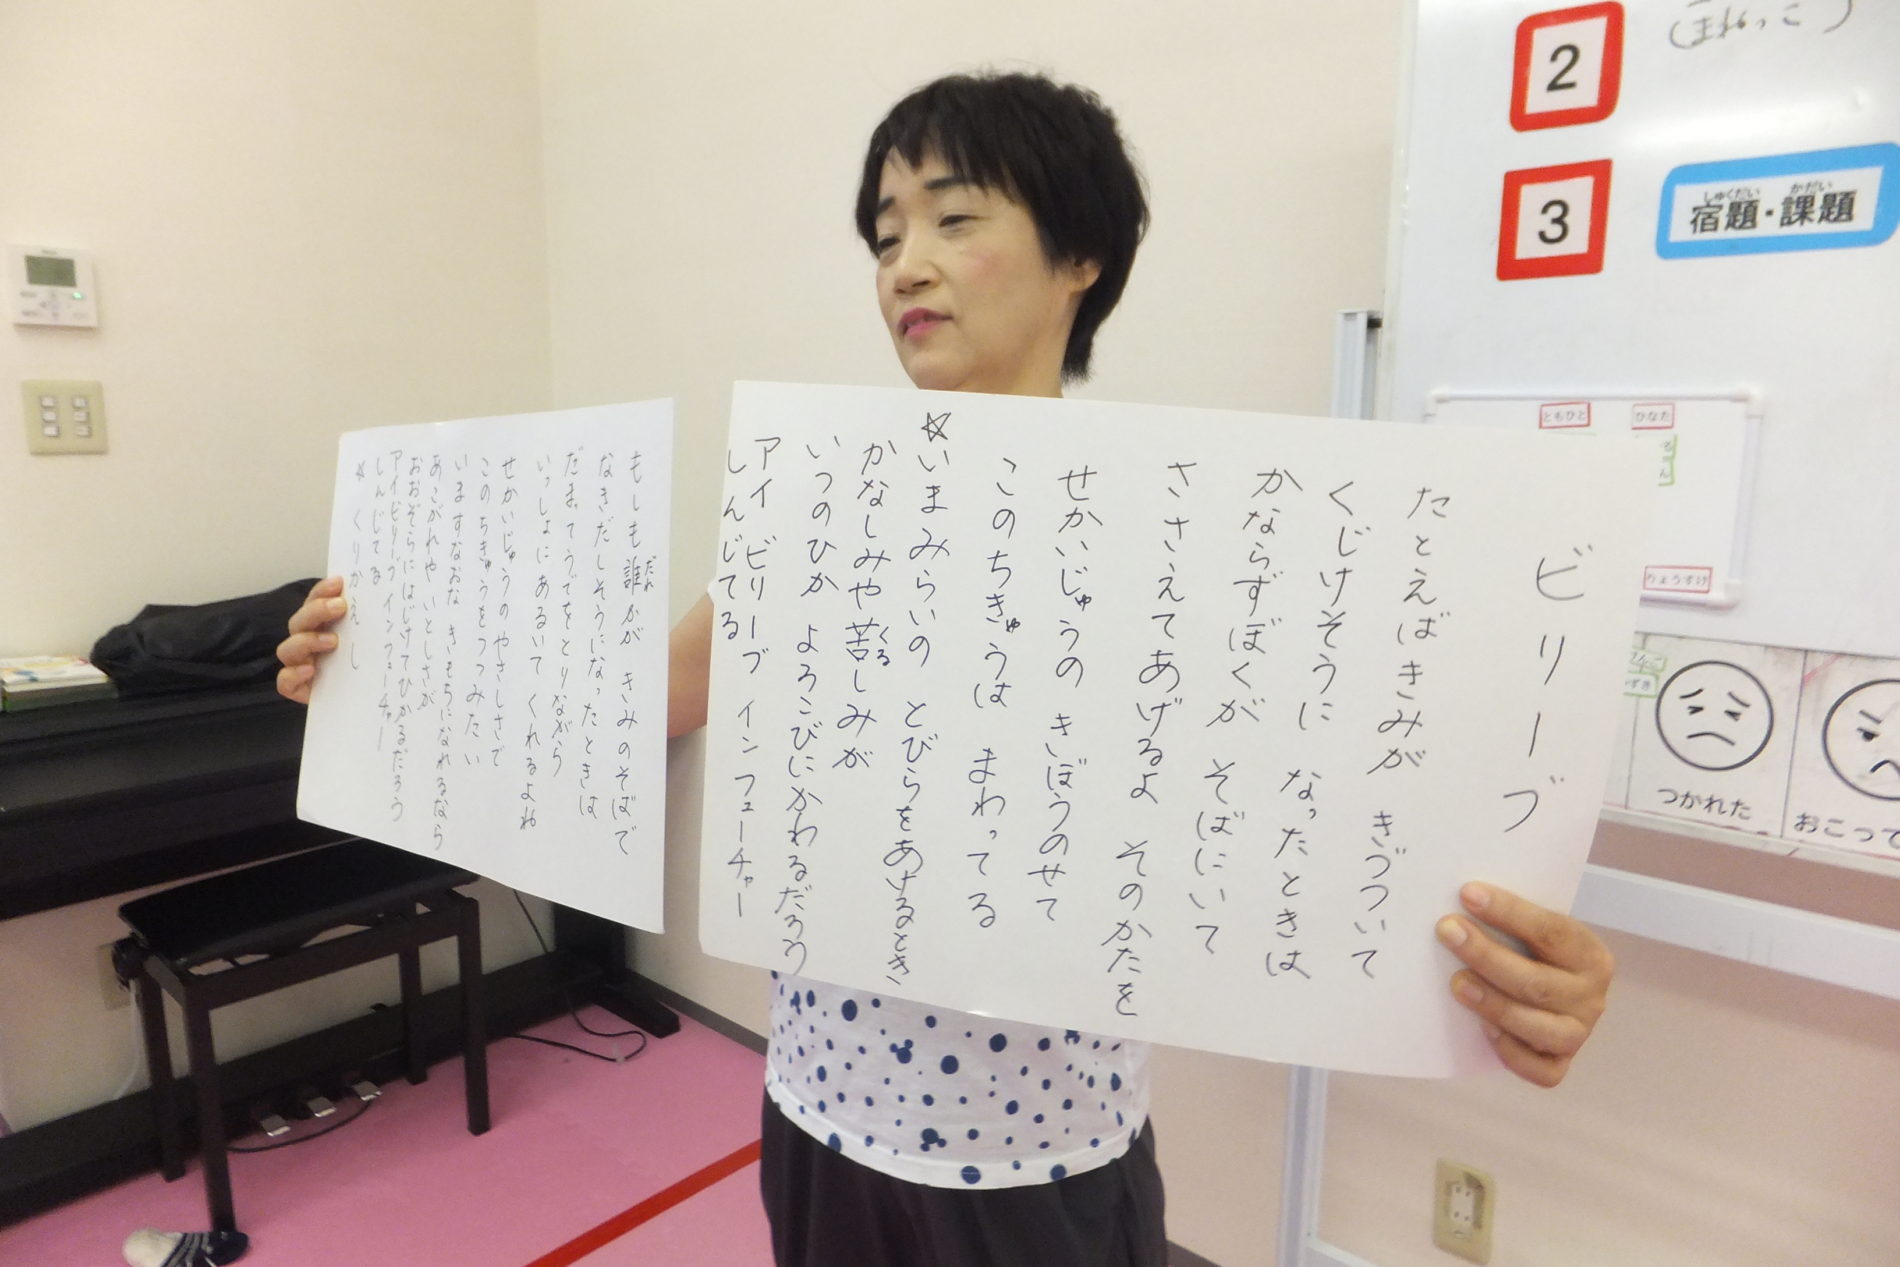 ビリーブ
たとえばきみが きづついて
くじけそうに なったときは
かならずぼくが そばにいて
ささえてあげるよ そのかたを
せかいじゅうの きぼうのせて
このちきゅうは まわってる
☆いまみらいの とびらをあけるとき
かなしみや苦しみが
くる
いつのひか よろこびにかわるだろう
アイ ビリーブ インフューチャー
しんじてる
もしも誰かが きみのそばで
だれ
なきだしそうになったときは
だまってうでをとりながら
いっしょにあるいて くれるよね
せかいじゅうの やさしさで
このちきゅうをつつみたい
いますなおな きもちになれるなら
あこがれや いとしさが
おおぞらにはじけてひかるだろう
アイビリーブ インフューチャー
しんじてる
☆ くりかえし
2
まねっこ
3
しゅくだい かだい
宿題・課題
ともひと
ひなた
りょうすけ
つかれた
おこって